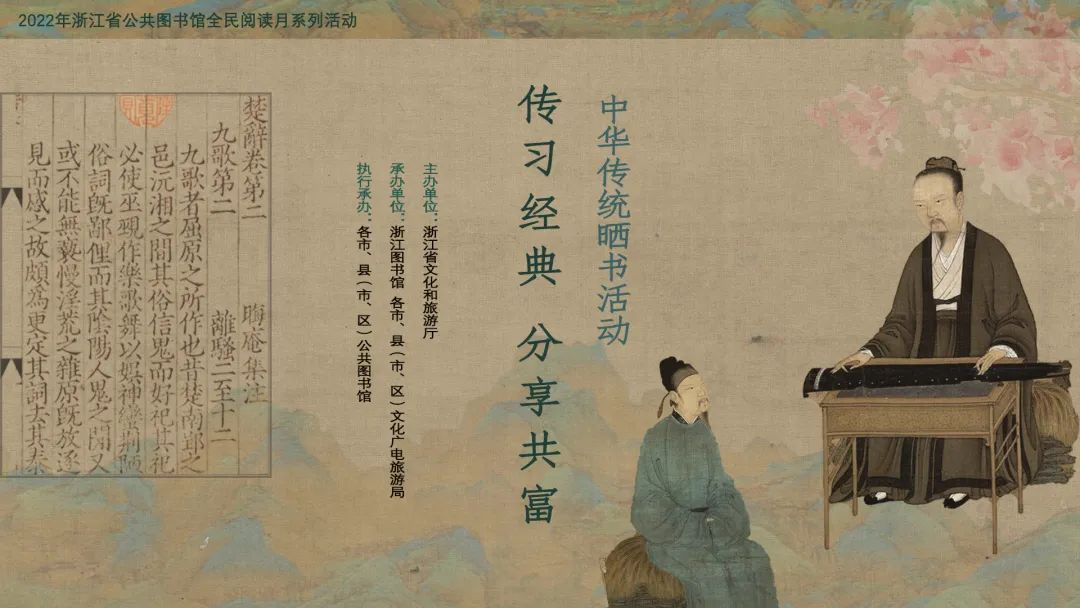 2022年浙江省公共图书馆全民阅读月系列活动
中华传统晒书活动
传习经典 分享共富
主办单位：浙江省文化和旅游厅
承办单位：浙江图书馆 各市、县（市、区）文化广电旅游局
执行承办：各市、县（市、区）公共图书馆
楚辭卷第二 晦庵集注
九歌第二 離騷二至十二
九歌者屈原之所作也昔楚南郢之
邑沅湘之間其俗信鬼而好祀其祀
必使巫覡作樂歌舞以娛神蠻荆陋
俗詞旣鄙俚而其陰陽人鬼之間又
或不能無褻慢淫荒之雜原旣放逐
見而感之故頗為更定其詞去其泰